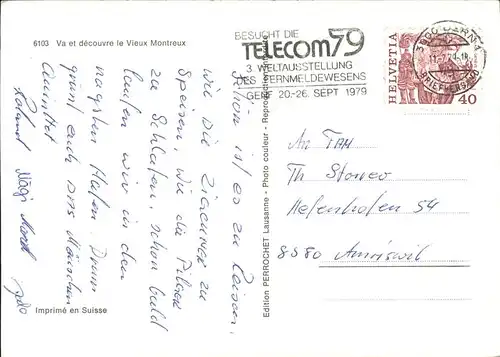 6103 Va et découvre le Vieux Montreux
BESUCHT DIE
TELECOM 79
3. WELTAUSSTELLUNG
DES FERNMELDEWESENS
GENF 20.-26. SEPT 1979
3000 BERN 1
BRIEFVERSAND
HELVETIA
40
Schön ist es zu Reisen,
wie die Zigeuner zu
Speisen, wie die Pilger
zu Schlafen, schon bald
laufen wir in den
nächsten Hafen. Drum
grüsst euch das Mäuschen
Roland Nägi
Edition PERROCHET Lausanne - Photo couleur - Reproduction interdite
An FAM
Th Storeo
Hefenhofen 54
8580 Amriswil
Imprimé en Suisse